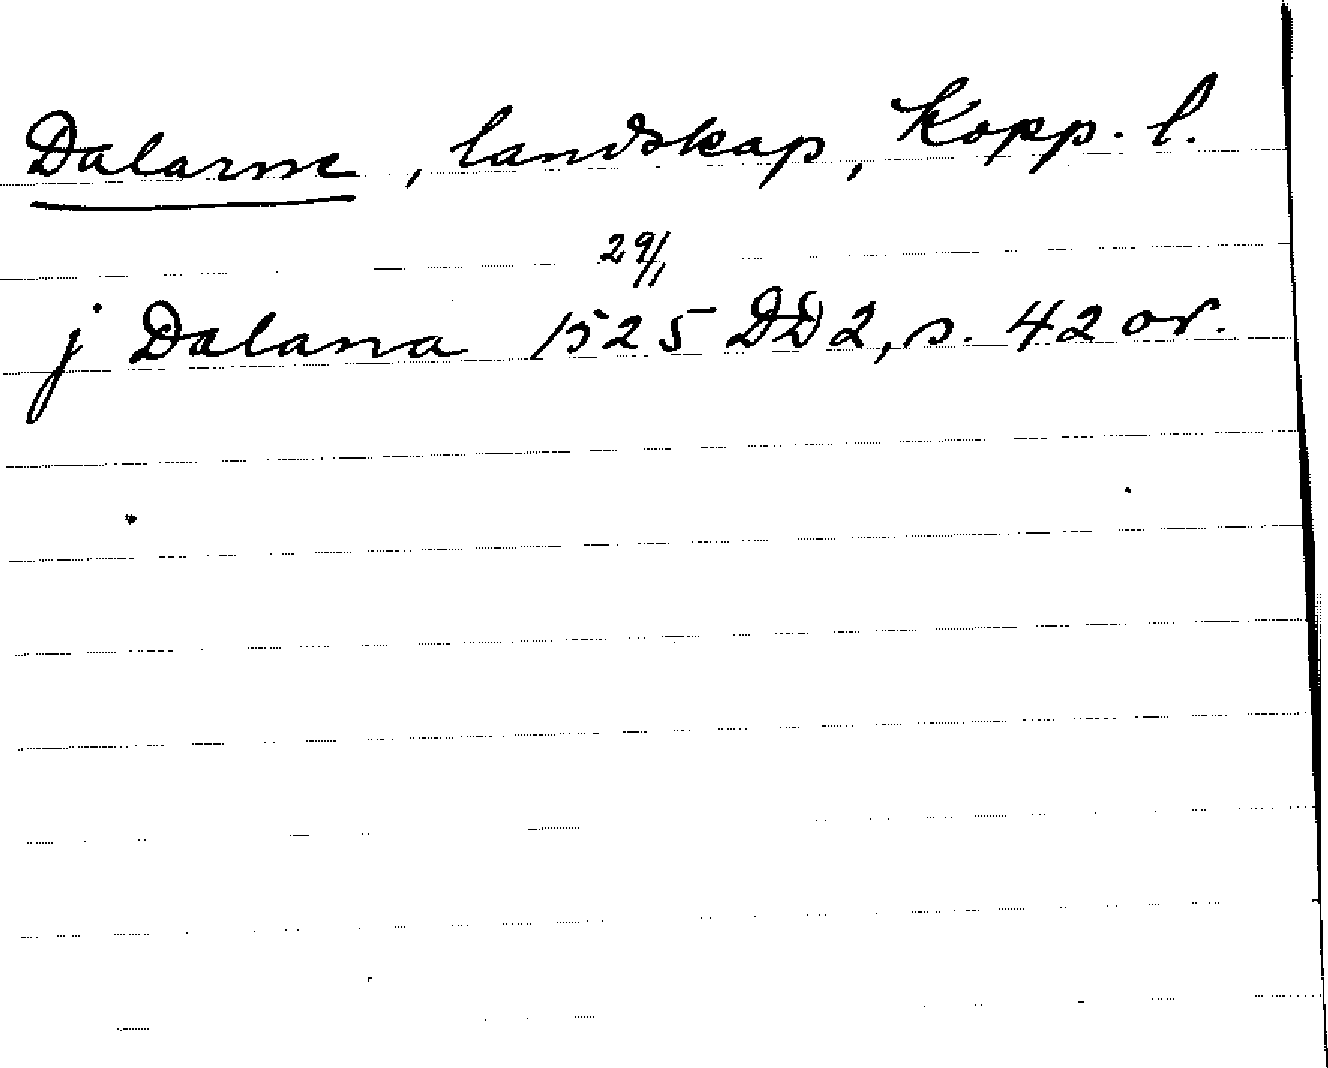 Dalarne, landskap, Kopp. l.
29/1
j Dalana 1525 DD2, s. 42 or.